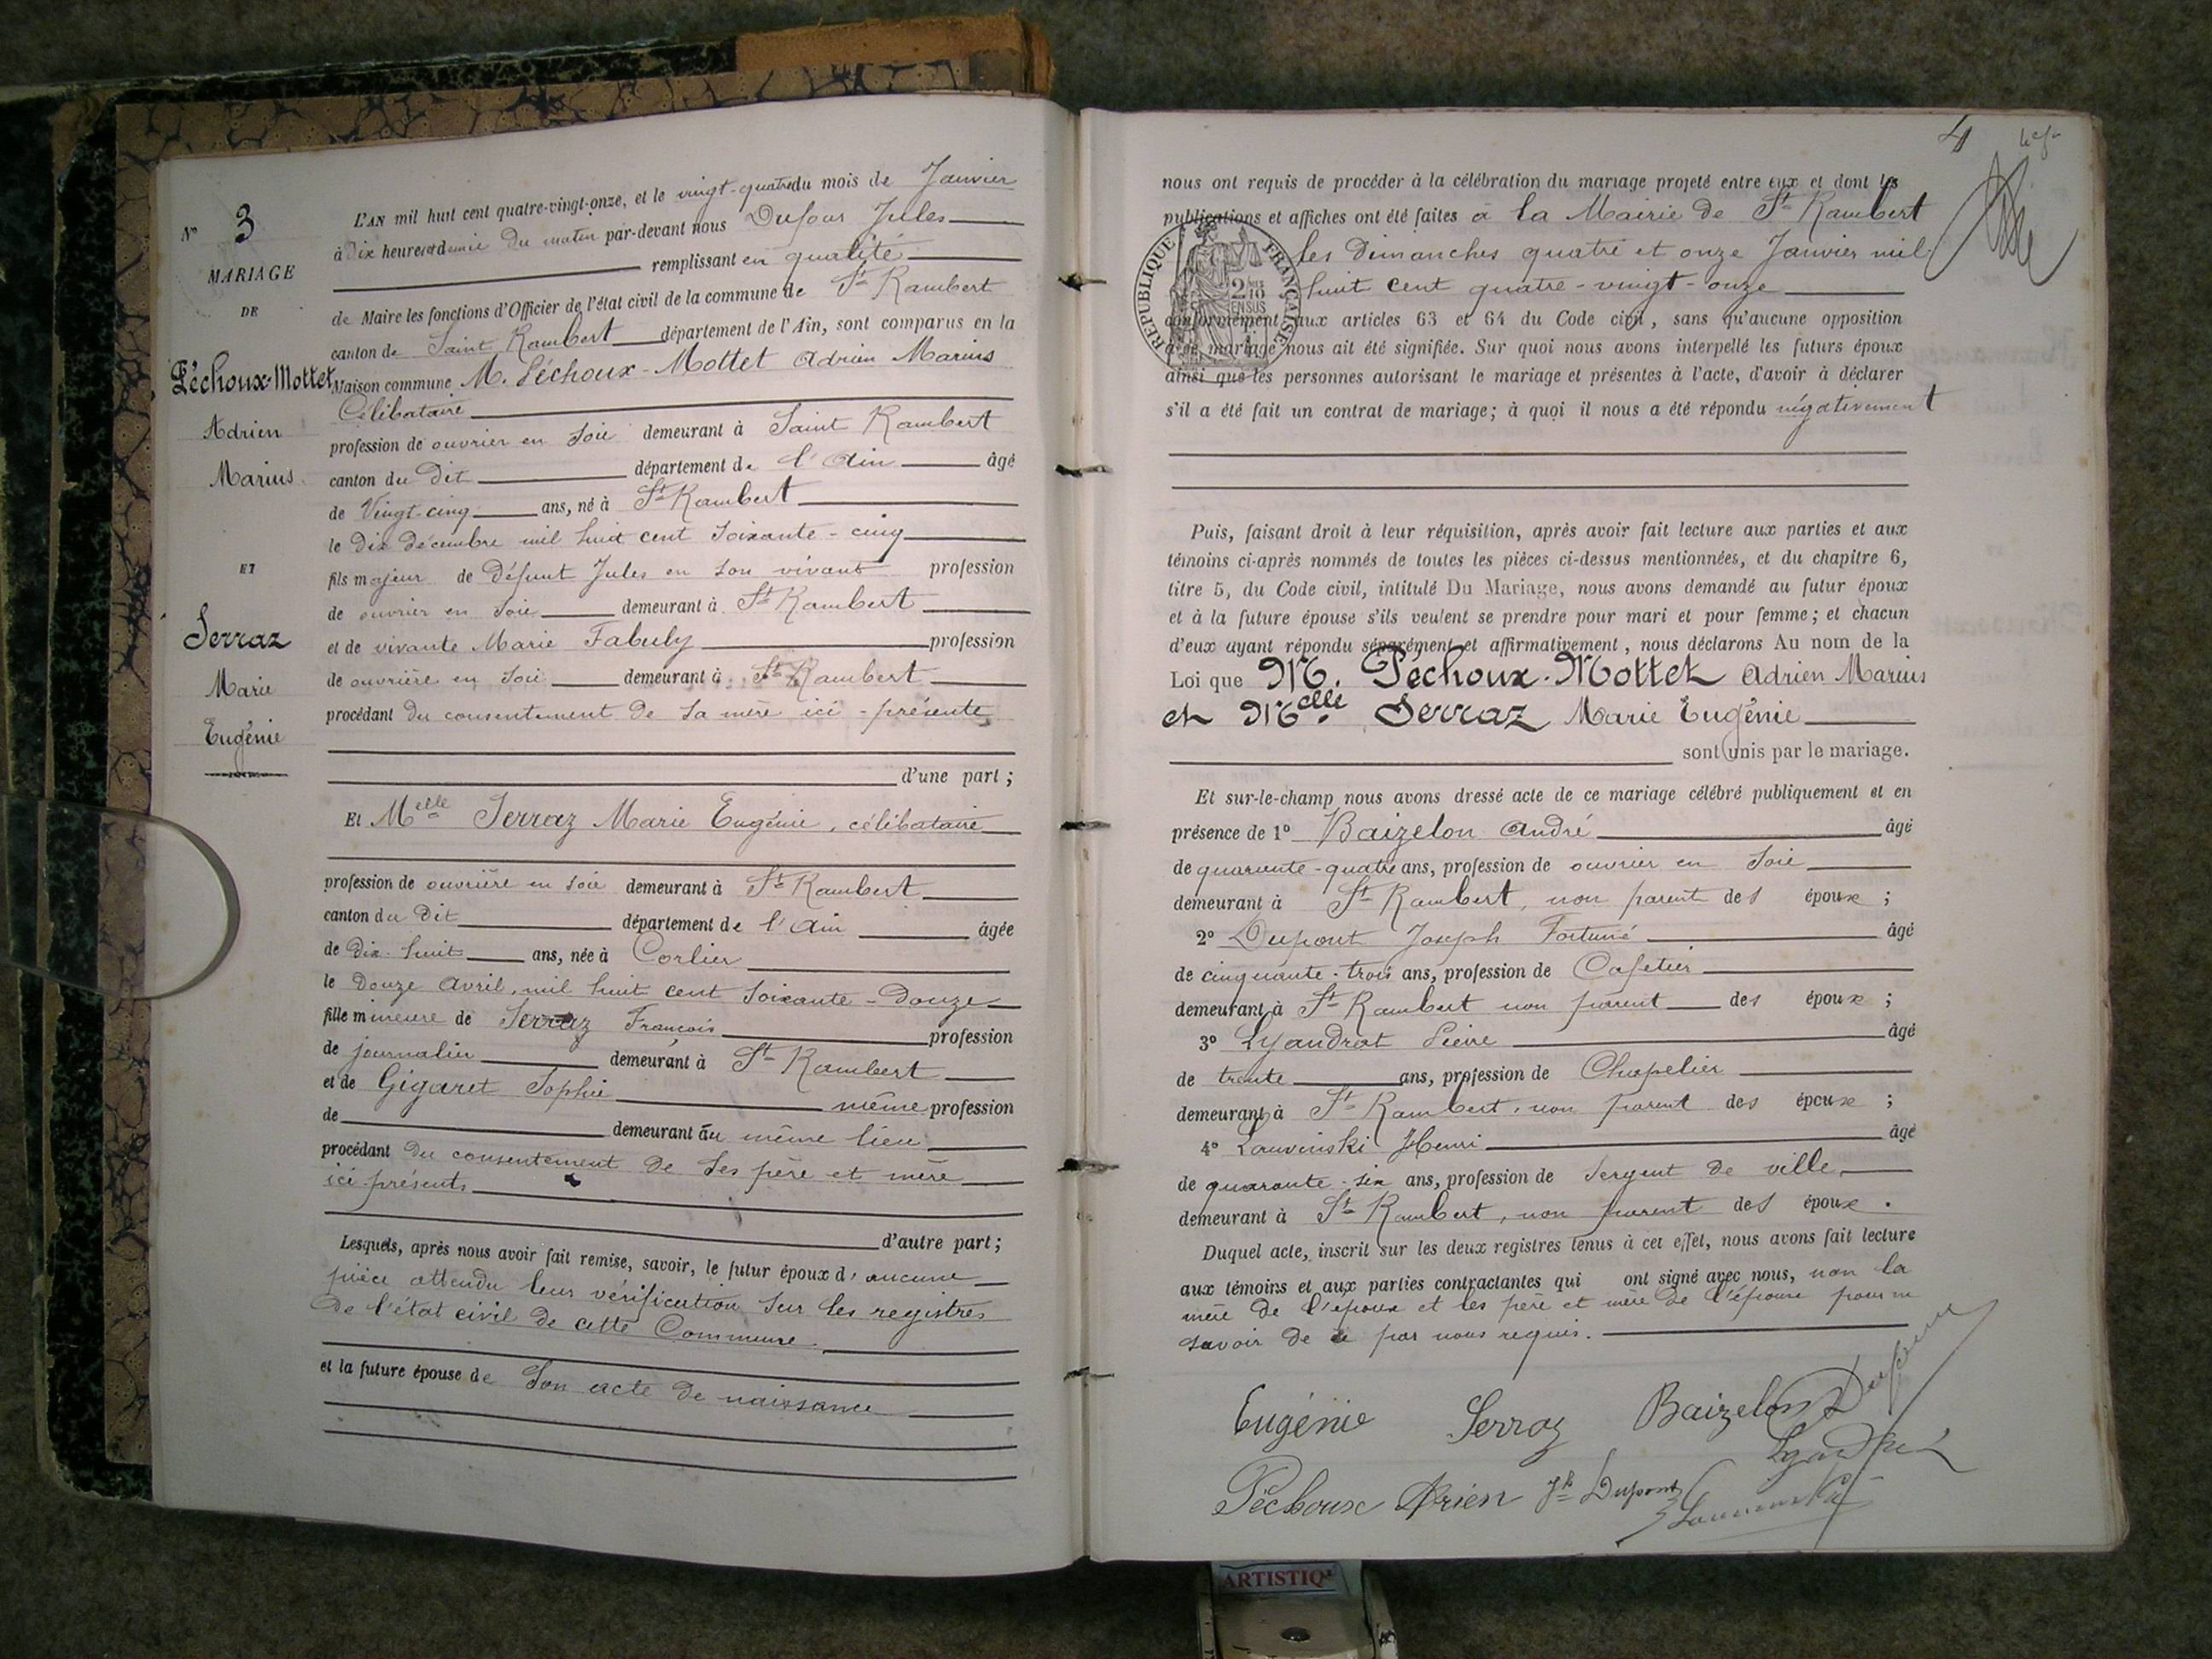 N° 3
MARIAGE
DE
Péchoux-Mottet
Adrien
Marius
ET
Serraz
Marie
Eugénie
L'AN mil huit cent quatre-vingt-onze, et le vingt-quatre du mois de Janvier
à Dix heures et demie du matin par-devant nous Dufour Jules
remplissant en qualité
de Maire les fonctions d'Officier de l'état civil de la commune de St Rambert
canton de Saint Rambert département de l'Ain, sont comparus en la
Maison commune M. Péchoux-Mottet Adrien Marius
Célibataire
profession de ouvrier en soie demeurant à Saint Rambert
canton du dit département de l'Ain âgé
de Vingt-cinq ans, né à St Rambert
le Dix décembre mil huit cent soixante-cinq
fils majeur de Défunt Jules en son vivant profession
de ouvrier en soie demeurant à St Rambert
et de vivante Marie Fabuly profession
de ouvrière en soie demeurant à St Rambert
procédant du consentement de sa mère ici-présente
d'une part ;
Et Melle Serraz Marie Eugénie, célibataire
profession de ouvrière en soie demeurant à St Rambert
canton du dit département de l'Ain âgée
de dix-huit ans, née à Corlier
le Douze Avril, mil huit cent soixante-douze
fille mineure de Serraz François profession
de journalier demeurant à St Rambert
et de Gigaret Sophie même profession
de demeurant au même lieu
procédant du consentement de ses père et mère
ici-présents
d'autre part ;
Lesquels, après nous avoir fait remise, savoir, le futur époux d'aucune
pièce attendu leur vérification sur les registres
de l'état civil de cette Commune.
et la future épouse de son acte de naissance
4
nous ont requis de procéder à la célébration du mariage projeté entre eux et dont les
publications et affiches ont été faites à la Mairie de St Rambert
les dimanches quatre et onze Janvier mil
huit cent quatre-vingt-onze
REPUBLIQUE FRANÇAISE
conformément aux articles 63 et 64 du Code civil, sans qu'aucune opposition
à ce mariage nous ait été signifiée. Sur quoi nous avons interpellé les futurs époux
ainsi que les personnes autorisant le mariage et présentes à l'acte, d'avoir à déclarer
s'il a été fait un contrat de mariage; à quoi il nous a été répondu négativement
Puis, faisant droit à leur réquisition, après avoir fait lecture aux parties et aux
témoins ci-après nommés de toutes les pièces ci-dessus mentionnées, et du chapitre 6,
titre 5, du Code civil, intitulé Du Mariage, nous avons demandé au futur époux
et à la future épouse s'ils veulent se prendre pour mari et pour femme ; et chacun
d'eux ayant répondu séparément et affirmativement, nous déclarons Au nom de la
Loi que M. Péchoux-Mottet Adrien Marius
et Melle Serraz Marie Eugénie
sont unis par le mariage.
Et sur-le-champ nous avons dressé acte de ce mariage célébré publiquement et en
présence de 1° Baizelon André âgé
de quarante-quatre ans, profession de ouvrier en soie
demeurant à St Rambert, non parent des époux ;
2° Dupont Joseph Fortuné âgé
de cinquante-trois ans, profession de Cafetier
demeurant à St Rambert non parent des époux ;
3° Lyaudrat Pierre âgé
de trente ans, profession de Chapelier
demeurant à St Rambert, non parent des époux ;
4° Louvinski Henri âgé
de quarante-six ans, profession de sergent de ville
demeurant à St Rambert, non parent des époux.
Duquel acte, inscrit sur les deux registres tenus à cet effet, nous avons fait lecture
aux témoins et aux parties contractantes qui ont signé avec nous, non la
mère de l'époux et les père et mère de l'épouse pour ne
savoir de ce par nous requis.
Eugénie Serraz Baizelon Dufour
Péchoux Adrien Jh Dupont
ARTISTIQ